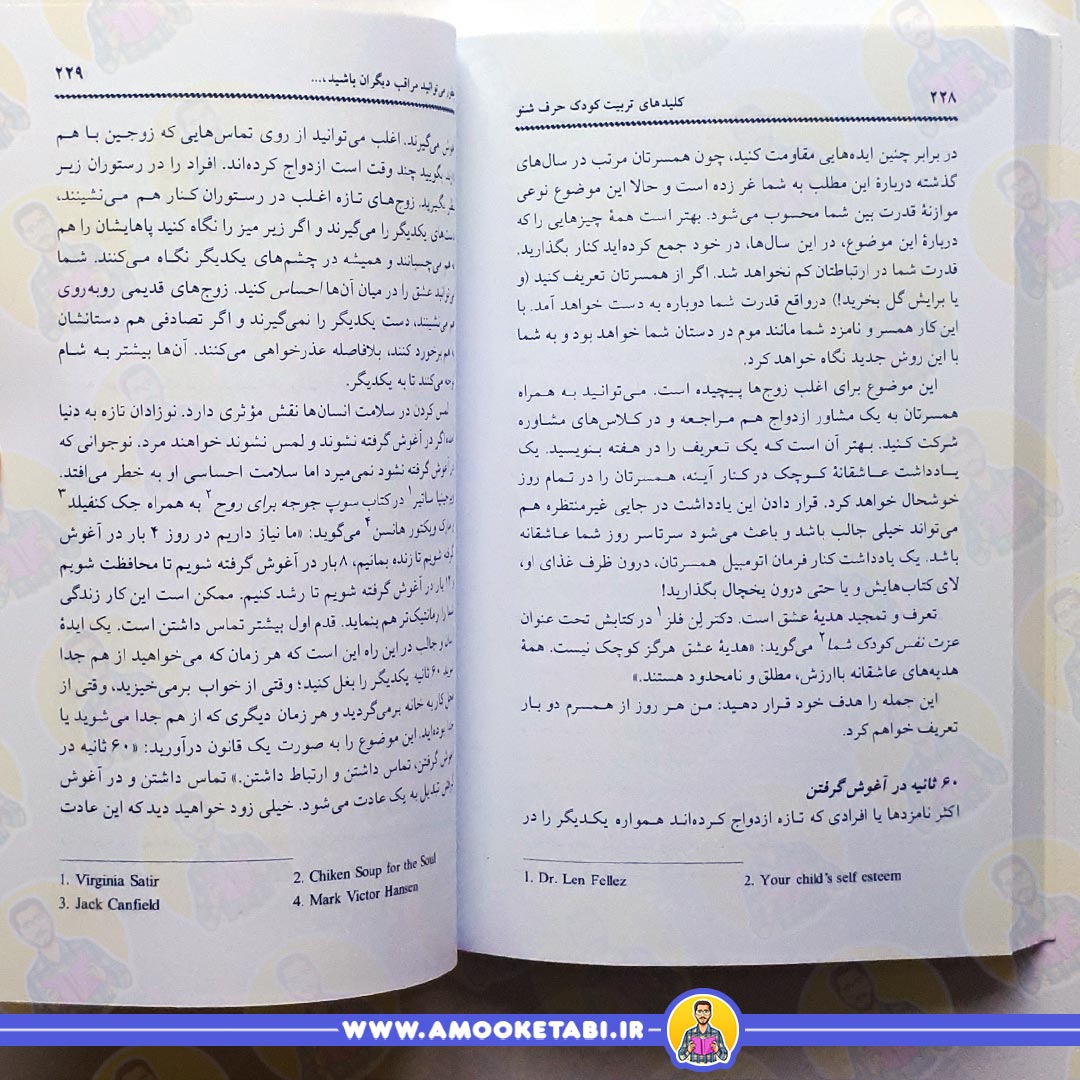 ۲۲۸
کلیدهای تربیت کودک حرف شنو
در برابر چنین ایده‌هایی مقاومت کنید، چون همسرتان مرتب در سال‌های
گذشته دربارهٔ این مطلب به شما غر زده است و حالا این موضوع نوعی
موازنهٔ قدرت بین شما محسوب می‌شود. بهتر است همهٔ چیزهایی را که
دربارهٔ این موضوع، در این سال‌ها، در خود جمع کرده‌اید کنار بگذارید.
قدرت شما در ارتباطتان کم نخواهد شد. اگر از همسرتان تعریف کنید (و
یا برایش گل بخرید!) درواقع قدرت شما دوباره به دست خواهد آمد. با
این کار همسر و نامزد شما مانند موم در دستان شما خواهد بود و به شما
با این روش جدید نگاه خواهد کرد.
این موضوع برای اغلب زوج‌ها پیچیده است. می‌توانید به همراه
همسرتان به یک مشاور ازدواج هم مراجعه و در کلاس‌های مشاوره
شرکت کنید. بهتر آن است که یک تعریف را در هفته بنویسید. یک
یادداشت عاشقانهٔ کوچک در کنار آینه، همسرتان را در تمام روز
خوشحال خواهد کرد. قرار دادن این یادداشت در جایی غیرمنتظره هم
می‌تواند خیلی جالب باشد و باعث می‌شود سرتاسر روز شما عاشقانه
باشد. یک یادداشت کنار فرمان اتومبیل همسرتان، درون ظرف غذای او،
لای کتاب‌هایش و یا حتی درون یخچال بگذارید!
تعرف و تمجید هدیهٔ عشق است. دکتر لِن فلز۱ در کتابش تحت عنوان
عزت نفس کودک شما۲ می‌گوید: «هدیهٔ عشق هرگز کوچک نیست. همهٔ
هدیه‌های عاشقانه باارزش، مطلق و نامحدود هستند.»
این جمله را هدف خود قرار دهید: من هر روز از همسرم دو بار
تعریف خواهم کرد.
۶۰ ثانیه در آغوش‌گرفتن
اکثر نامزدها یا افرادی که تازه ازدواج کرده‌اند همواره یکدیگر را در
1. Dr. Len Fellez 2. Your child's self esteem
می‌توانید مراقب دیگران باشید،...
۲۲۹
می‌گیرند. اغلب می‌توانید از روی تماس‌هایی که زوجین با هم
بگویید چند وقت است ازدواج کرده‌اند. افراد را در رستوران زیر
بگیرید. زوج‌های تازه اغلب در رستوران کنار هم می‌نشینند،
یکدیگر را می‌گیرند و اگر زیر میز را نگاه کنید پاهایشان را هم
می‌چسبانند و همیشه در چشم‌های یکدیگر نگاه می‌کنند. شما
عشق را در میان آن‌ها احساس کنید. زوج‌های قدیمی روبه‌روی
می‌نشینند، دست یکدیگر را نمی‌گیرند و اگر تصادفی هم دستانشان
برخورد کنند، بلافاصله عذرخواهی می‌کنند. آن‌ها بیشتر به شام
می‌کنند تا به یکدیگر.
لمس کردن در سلامت انسان‌ها نقش مؤثری دارد. نوزادان تازه به دنیا
اگر در آغوش گرفته نشوند و لمس نشوند خواهند مرد. نوجوانی که
آغوش گرفته نشود نمی‌میرد اما سلامت احساسی او به خطر می‌افتد.
ساتیر۱ در کتاب سوپ جوجه برای روح۲ به همراه جک کنفیلد۳
مارک ویکتور هانسن۴ می‌گوید: «ما نیاز داریم در روز ۴ بار در آغوش
گرفته شویم تا زنده بمانیم، ۸ بار در آغوش گرفته شویم تا محافظت شویم
۱۲ بار در آغوش گرفته شویم تا رشد کنیم. ممکن است این کار زندگی
را رمانتیک‌تر هم بنماید. قدم اول بیشتر تماس داشتن است. یک ایدهٔ
و جالب در این راه این است که هر زمان که می‌خواهید از هم جدا
۶۰ ثانیه یکدیگر را بغل کنید؛ وقتی از خواب برمی‌خیزید، وقتی از
کار به خانه برمی‌گردید و هر زمان دیگری که از هم جدا می‌شوید یا
بوده‌اید. این موضوع را به صورت یک قانون درآورید: «۶۰ ثانیه در
گرفتن، تماس داشتن و ارتباط داشتن.» تماس داشتن و در آغوش
تبدیل به یک عادت می‌شود. خیلی زود خواهید دید که این عادت
1. Virginia Satir 2. Chiken Soup for the Soul
3. Jack Canfield 4. Mark Victor Hansen
WWW.AMOOKETABI.IR